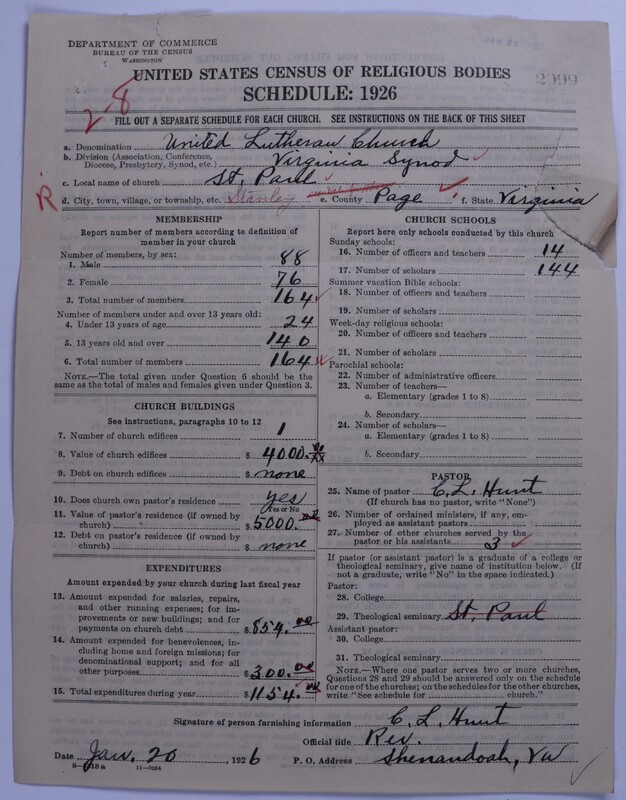 DEPARTMENT OF COMMERCE
BUREAU OF THE CENSUS
WASHINGTON
JAN 22
2999
UNITED STATES CENSUS OF RELIGIOUS BODIES
SCHEDULE: 1926
2-8
FILL OUT A SEPARATE SCHEDULE FOR EACH CHURCH. SEE INSTRUCTIONS ON THE BACK OF THIS SHEET
a. Denomination United Lutheran Church
b. Division (Association, Conference,
Diocese, Presbytery, Synod, etc.) Virginia Synod
c. Local name of church St, Paul
R.
d. City, town, village, or township, etc. Stanley e. County Page f. State Virginia
MEMBERSHIP
Report number of members according to definition of
member in your church
Number of members, by sex:
1. Male 88
2. Female 76
3. Total number of members 164
Number of members under and over 13 years old:
4. Under 13 years of age 24
5. 13 years old and over 140
6. Total number of members 164
NOTE.—The total given under Question 6 should be the
same as the total of males and females given under Question 3.
CHURCH BUILDINGS
See instructions, paragraphs 10 to 12
7. Number of church edifices 1
8. Value of church edifices $ 4000. 00/xx
9. Debt on church edifices $ none
10. Does church own pastor's residence yes
Yes or No
11. Value of pastor's residence (if owned by
church) $ 5000.
12. Debt on pastor's residence (if owned by
church) $ none
EXPENDITURES
Amount expended by your church during last fiscal year
13. Amount expended for salaries, repairs,
and other running expenses; for im-
provements or new buildings; and for
payments on church debt $ 854. 00
14. Amount expended for benevolences, in-
cluding home and foreign missions; for
denominational support; and for all
other purposes $ 300. 00
15. Total expenditures during year $ 1154. 00
CHURCH SCHOOLS
Report here only schools conducted by this church
Sunday schools:
16. Number of officers and teachers 14
17. Number of scholars 144
Summer vacation Bible schools:
18. Number of officers and teachers
19. Number of scholars
Week-day religious schools:
20. Number of officers and teachers
21. Number of scholars
Parochial schools:
22. Number of administrative officers
23. Number of teachers—
a. Elementary (grades 1 to 8)
b. Secondary
24. Number of scholars—
a. Elementary (grades 1 to 8)
b. Secondary
PASTOR
25. Name of pastor C. L. Hunt
(If church has no pastor, write "None")
26. Number of ordained ministers, if any, em-
ployed as assistant pastors
27. Number of other churches served by the
pastor or his assistants 3
If pastor (or assistant pastor) is a graduate of a college or
theological seminary, give name of institution below. (If
not a graduate, write "No" in the space indicated.)
Pastor:
28. College
29. Theological seminary St, Paul
Assistant pastor:
30. College
31. Theological seminary
NOTE.—Where one pastor serves two or more churches,
Questions 28 and 29 should be answered only on the schedule
for one of the churches; on the schedules for the other churches,
write "See schedule for church."
Signature of person furnishing information C. L. Hunt
Official title Rev.
Date Jan. 20, 1926 P. O. Address Shenandoah, Va
11—9084